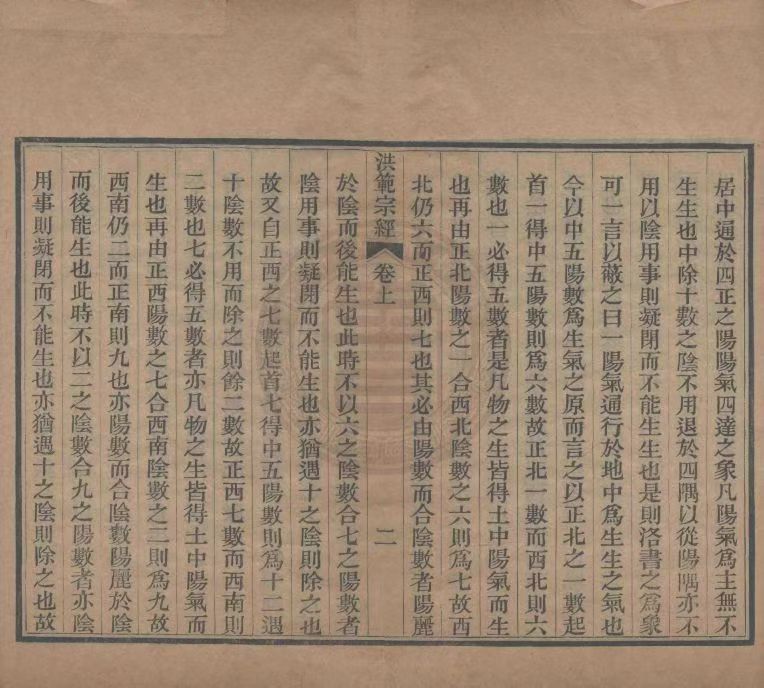 居中通於四正之陽陽氣四達之象凡陽氣爲主無不
生生也中除十數之陰不用退於四隅以從陽隅亦不
用以陰用事則凝閉而不能生生也是則洛書之爲象
可一言以蔽之曰一陽氣通行於地中爲生生之氣也
今以中五陽數爲生氣之原而言之以正北之一數起
首一得中五陽數則爲六數故正北一數而西北則六
數也一必得五數者是凡物之生皆得土中陽氣而生
也再由正北陽數之一合西北陰數之六則爲七故西
北仍六而正西則七也其必由陽數而合陰數者陽麗
洪範宗經 卷上 二
於陰而後能生也此時不以六之陰數合七之陽數者
陰用事則凝閉而不能生也亦猶遇十之陰則除之也
故又自正西之七數起首七得中五陽數則爲十二遇
十陰數不用而除之則餘二數故正西七數而西南則
二數也七必得五數者亦凡物之生皆得土中陽氣而
生也再由正西陽數之七合西南陰數之二則爲九故
西南仍二而正南則九也亦陽數而合陰數陽麗於陰
而後能生也此時不以二之陰數合九之陽數者亦陰
用事則凝閉而不能生也亦猶遇十之陰則除之也故